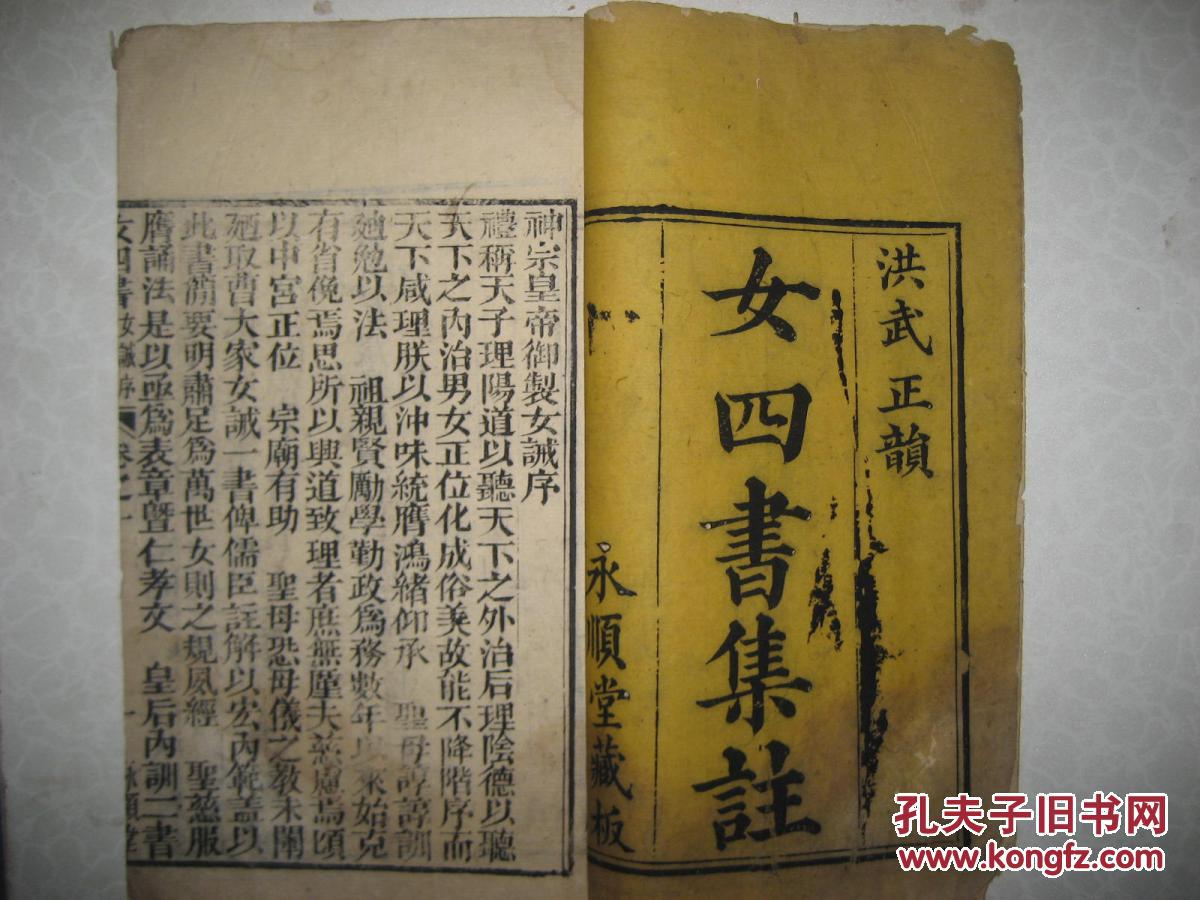 洪武正韻
女四書集註
永順堂藏板
神宗皇帝御製女誡序
禮稱天子理陽道以聽天下之外治后理陰德以聽
天下之內治男女正位化成俗美故能不降階序而
天下咸理朕以沖味統膺鴻緒仰承 聖母諄諄訓
廸勉以法 祖親賢勵學勤政爲務數年以來始克
有省俛焉思所以興道致理者庶無墜夫慈慮焉頃
以中宮正位 宗廟有助 聖母恐母儀之教未闡
廼取曹大家女誡一書俾儒臣註解以宏內範盖以
此書簡要明肅足爲萬世女則之規夙經 聖慈服
膺誦法是以亟爲表章曁仁孝文 皇后內訓二書
女四書 女誡序 卷之一 一 永順堂
孔夫子旧书网
www.kongfz.com